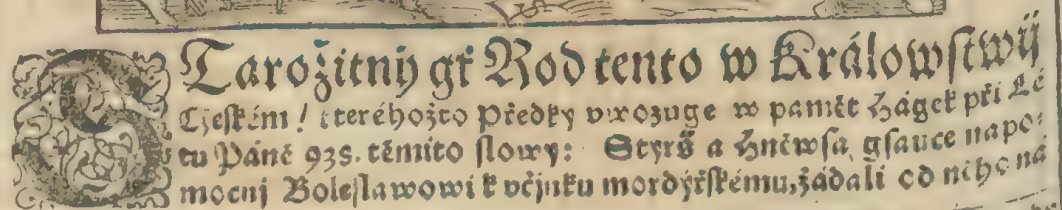 STarožitný gť Rod tento w Králowſtwij
Cžeſkém / kteréhožto Předky vwozuge w pamět Hágek při Lé
tu Páně 938. těmito ſlowy: Styrš a Hněwſa, gſauce napo⸗
mocnj Boleſlawowi k včjnku mordýřſkému, žádali od něho na